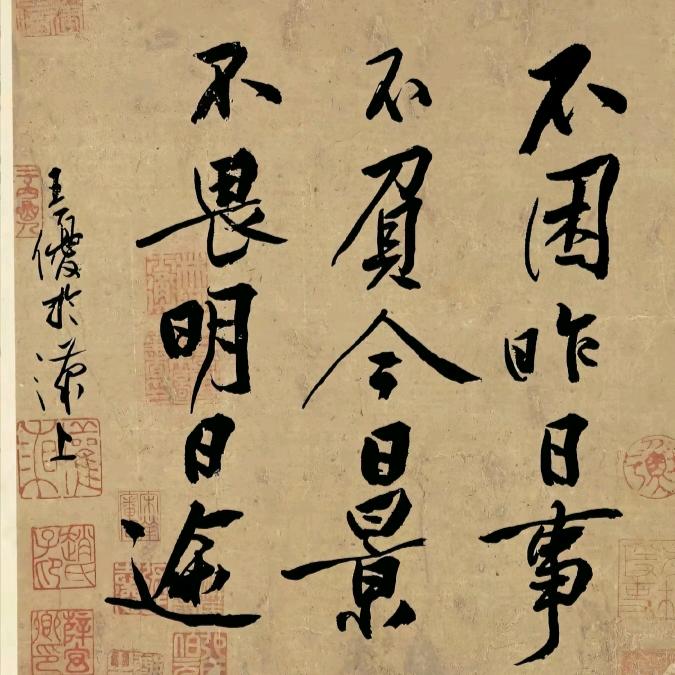 不困昨日事
不負今日景
不畏明日途
王優於漢上